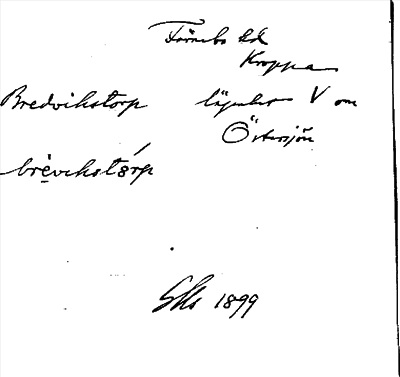 Färnebo hd
Kroppa
Bredvikstorp lägenhet V om
Östersjön
brèvikstórp
1899